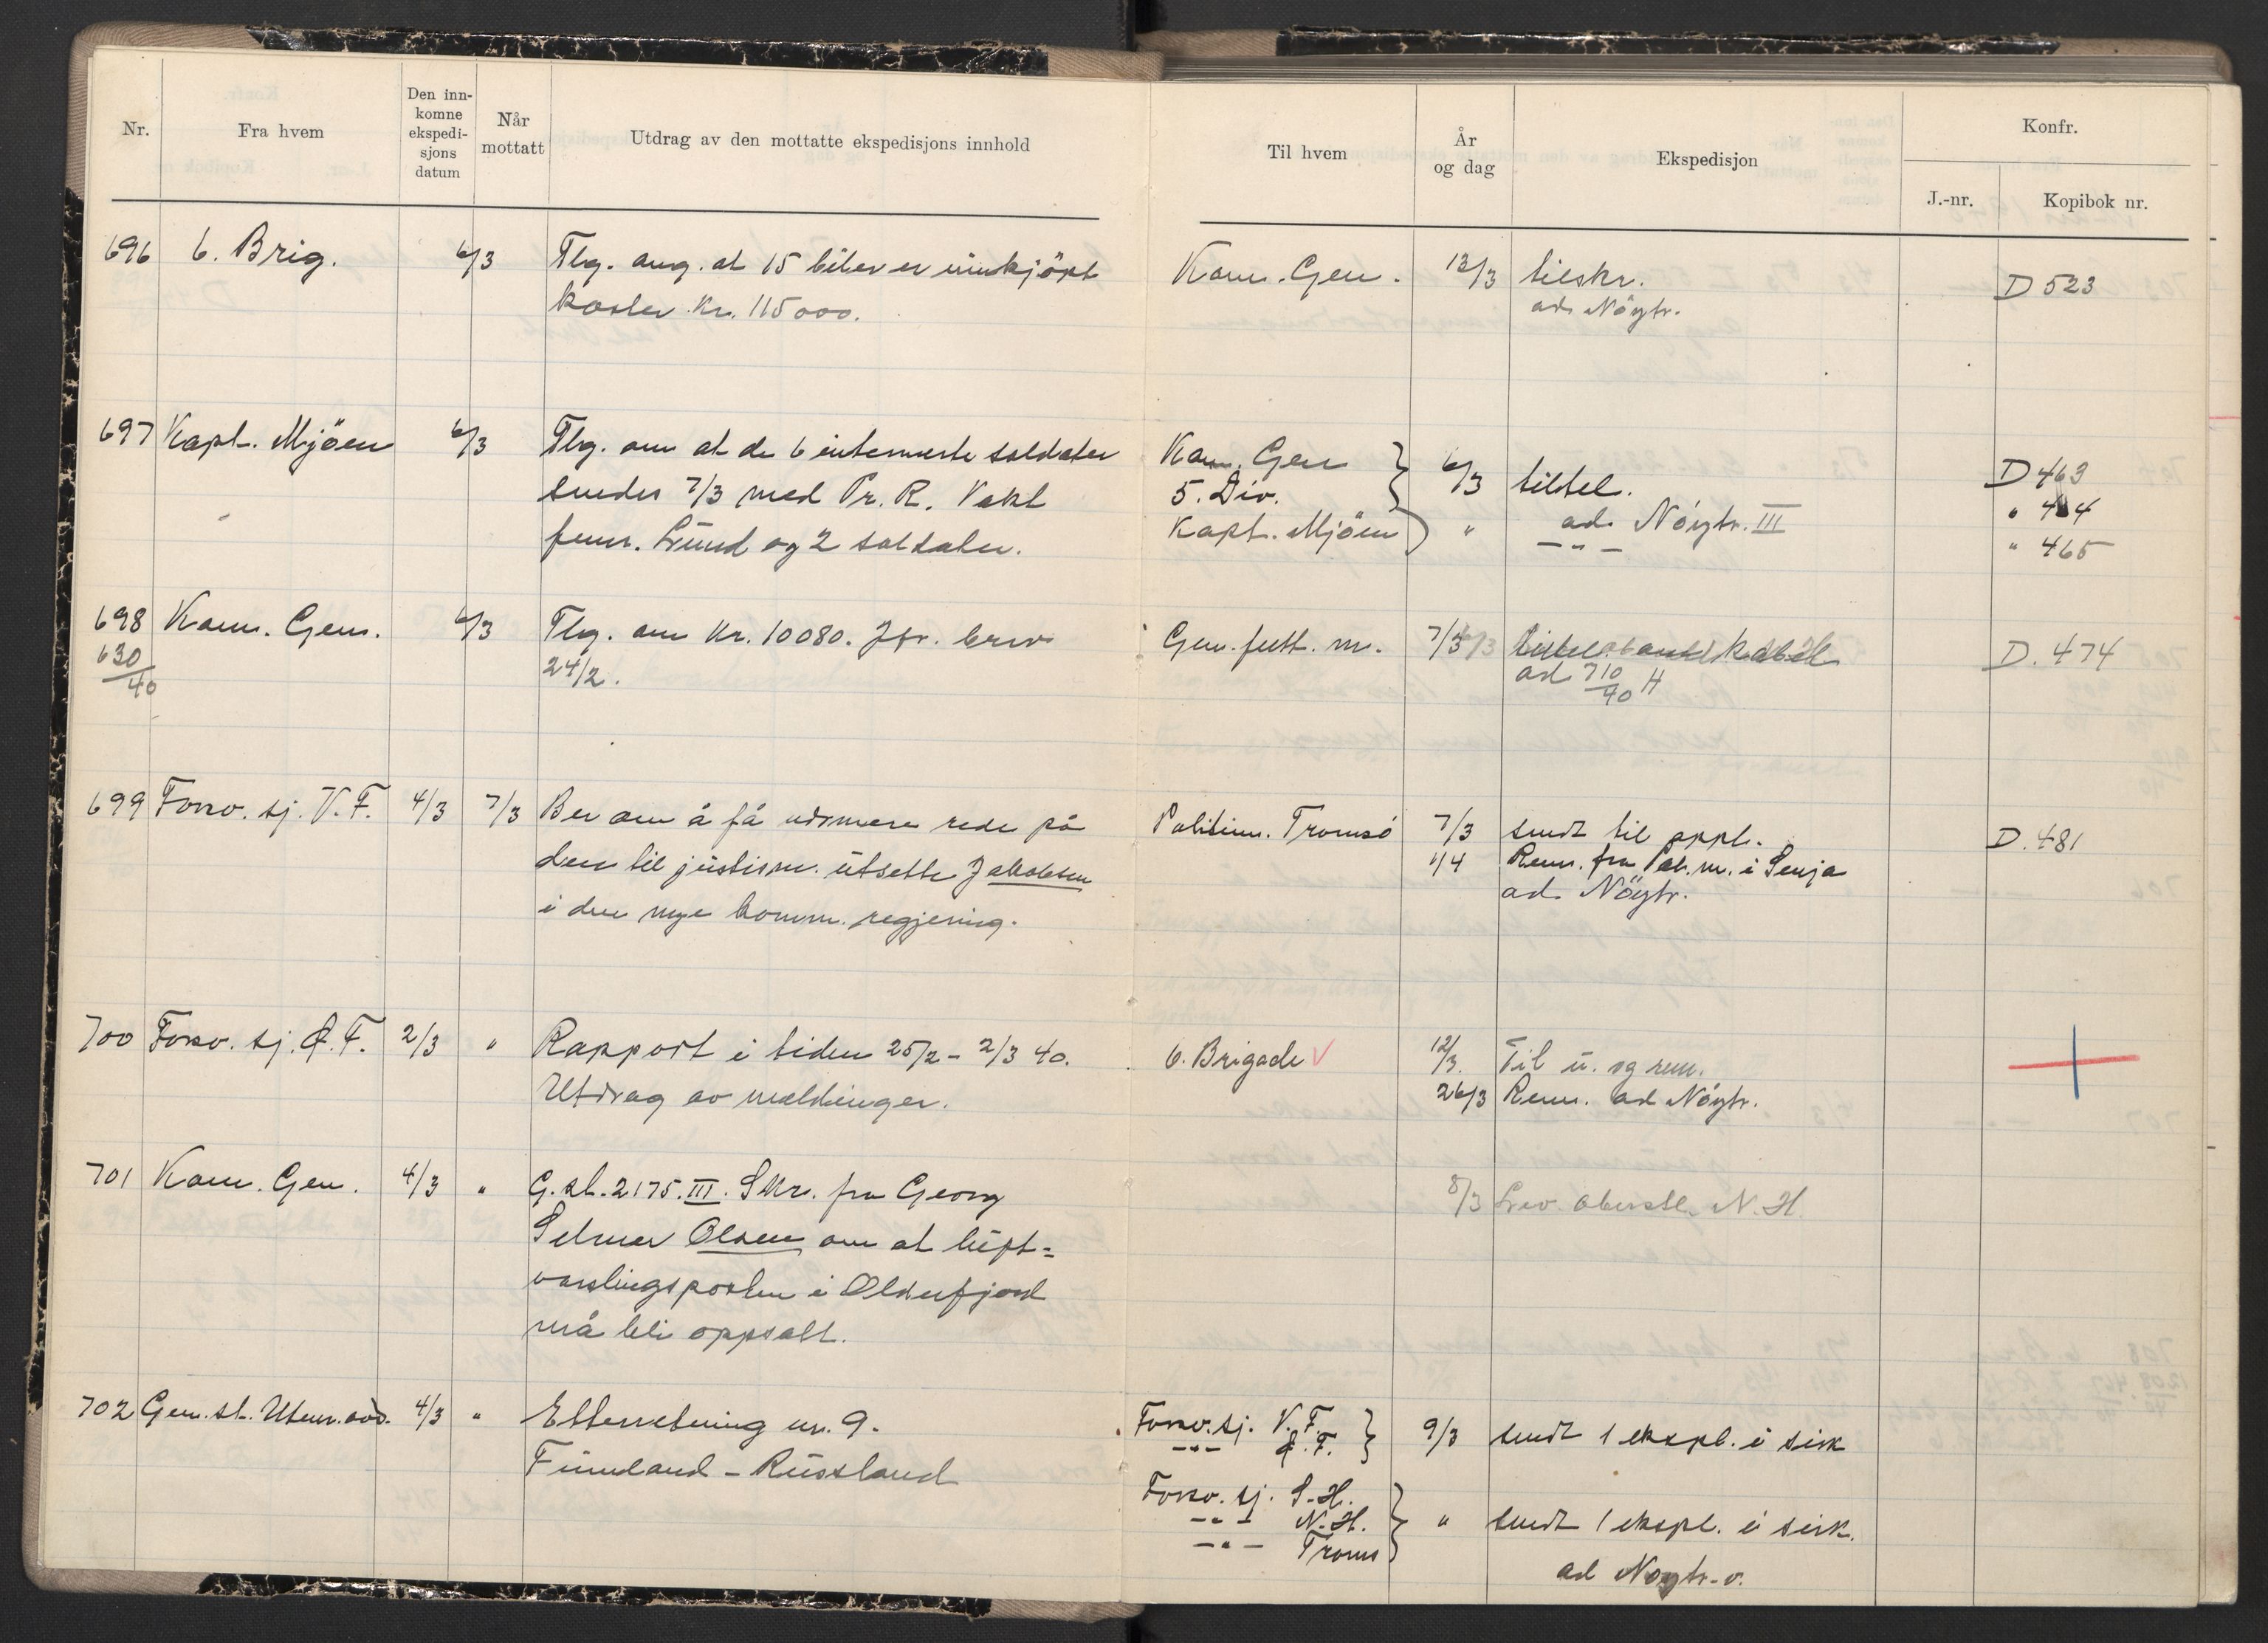 Nr.
Fra hvem
Den inn-
komne
ekspedi-
sjons
datum
Når
mottatt
Utdrag av den mottatte ekspedisjons innhold
Til hvem
År
og dag
Ekspedisjon
Konfr.
J.-nr.
Kopibok nr.
696 6. Brig. 6/3 Tlg. ang. at 15 biler er innkjöpt
koster kr. 115000.
Kom. Gen. 12/3 tilskr.
ad Nöytr.
D 523
697 Kapt. Mjöen 6/3 Tlg. om at de 6 internerte soldater
sendes 7/3 med Pr. R. Vakt
fenr. Lund og 2 soldater.
Kom. Gen
5. Div. 6/3 tiltel.
Kapt. Mjöen " ad Nöytr. III
— " —
D 463
" 464
" 465
698 Kom. Gen. 6/3 Tlg. om kr. 10080. Jfr. brev
630/40
24/2.
Gen. felt. m. 7/3
ad 710/40 H
D. 474
699 Forsv. sj. V.F. 4/3 7/3 Ber om å få nærmere rede på
den til justism. utsette Jakobsen
i den nye komm. regjering.
Politim. Tromsö 7/3 sendt til oppl.
1/4 Rem. fra Pol. m. i Senja
ad Nöytr.
D. 481
700 Forsv. sj. Ø.F. 2/3 " Rapport i tiden 25/2 - 2/3 40.
Utdrag av meldinger.
6. Brigade V 12/3. Til u. og rem.
26/3 Rem. ad Nöytr.
701 Kom. Gen. 4/3 " G. st. 2175. III. Skr. fra Georg
Selmer Olsen om at luft=
varslingsposten i Olderfjord
må bli oppsatt.
8/3 Lev. oberstl. N. H.
702 Gen. st. Utenr. avd. 4/3 " Etterretning nr. 9.
Finnland - Russland
Forsv. sj. V. F.
— " — Ø. F. 9/3 sendt 1 ekspl. i sirk
Forsv. sj. S. H.
— " — N. H. " sendt 1 ekspl. i sirk.
— " — Troms
ad Nöytr. v.